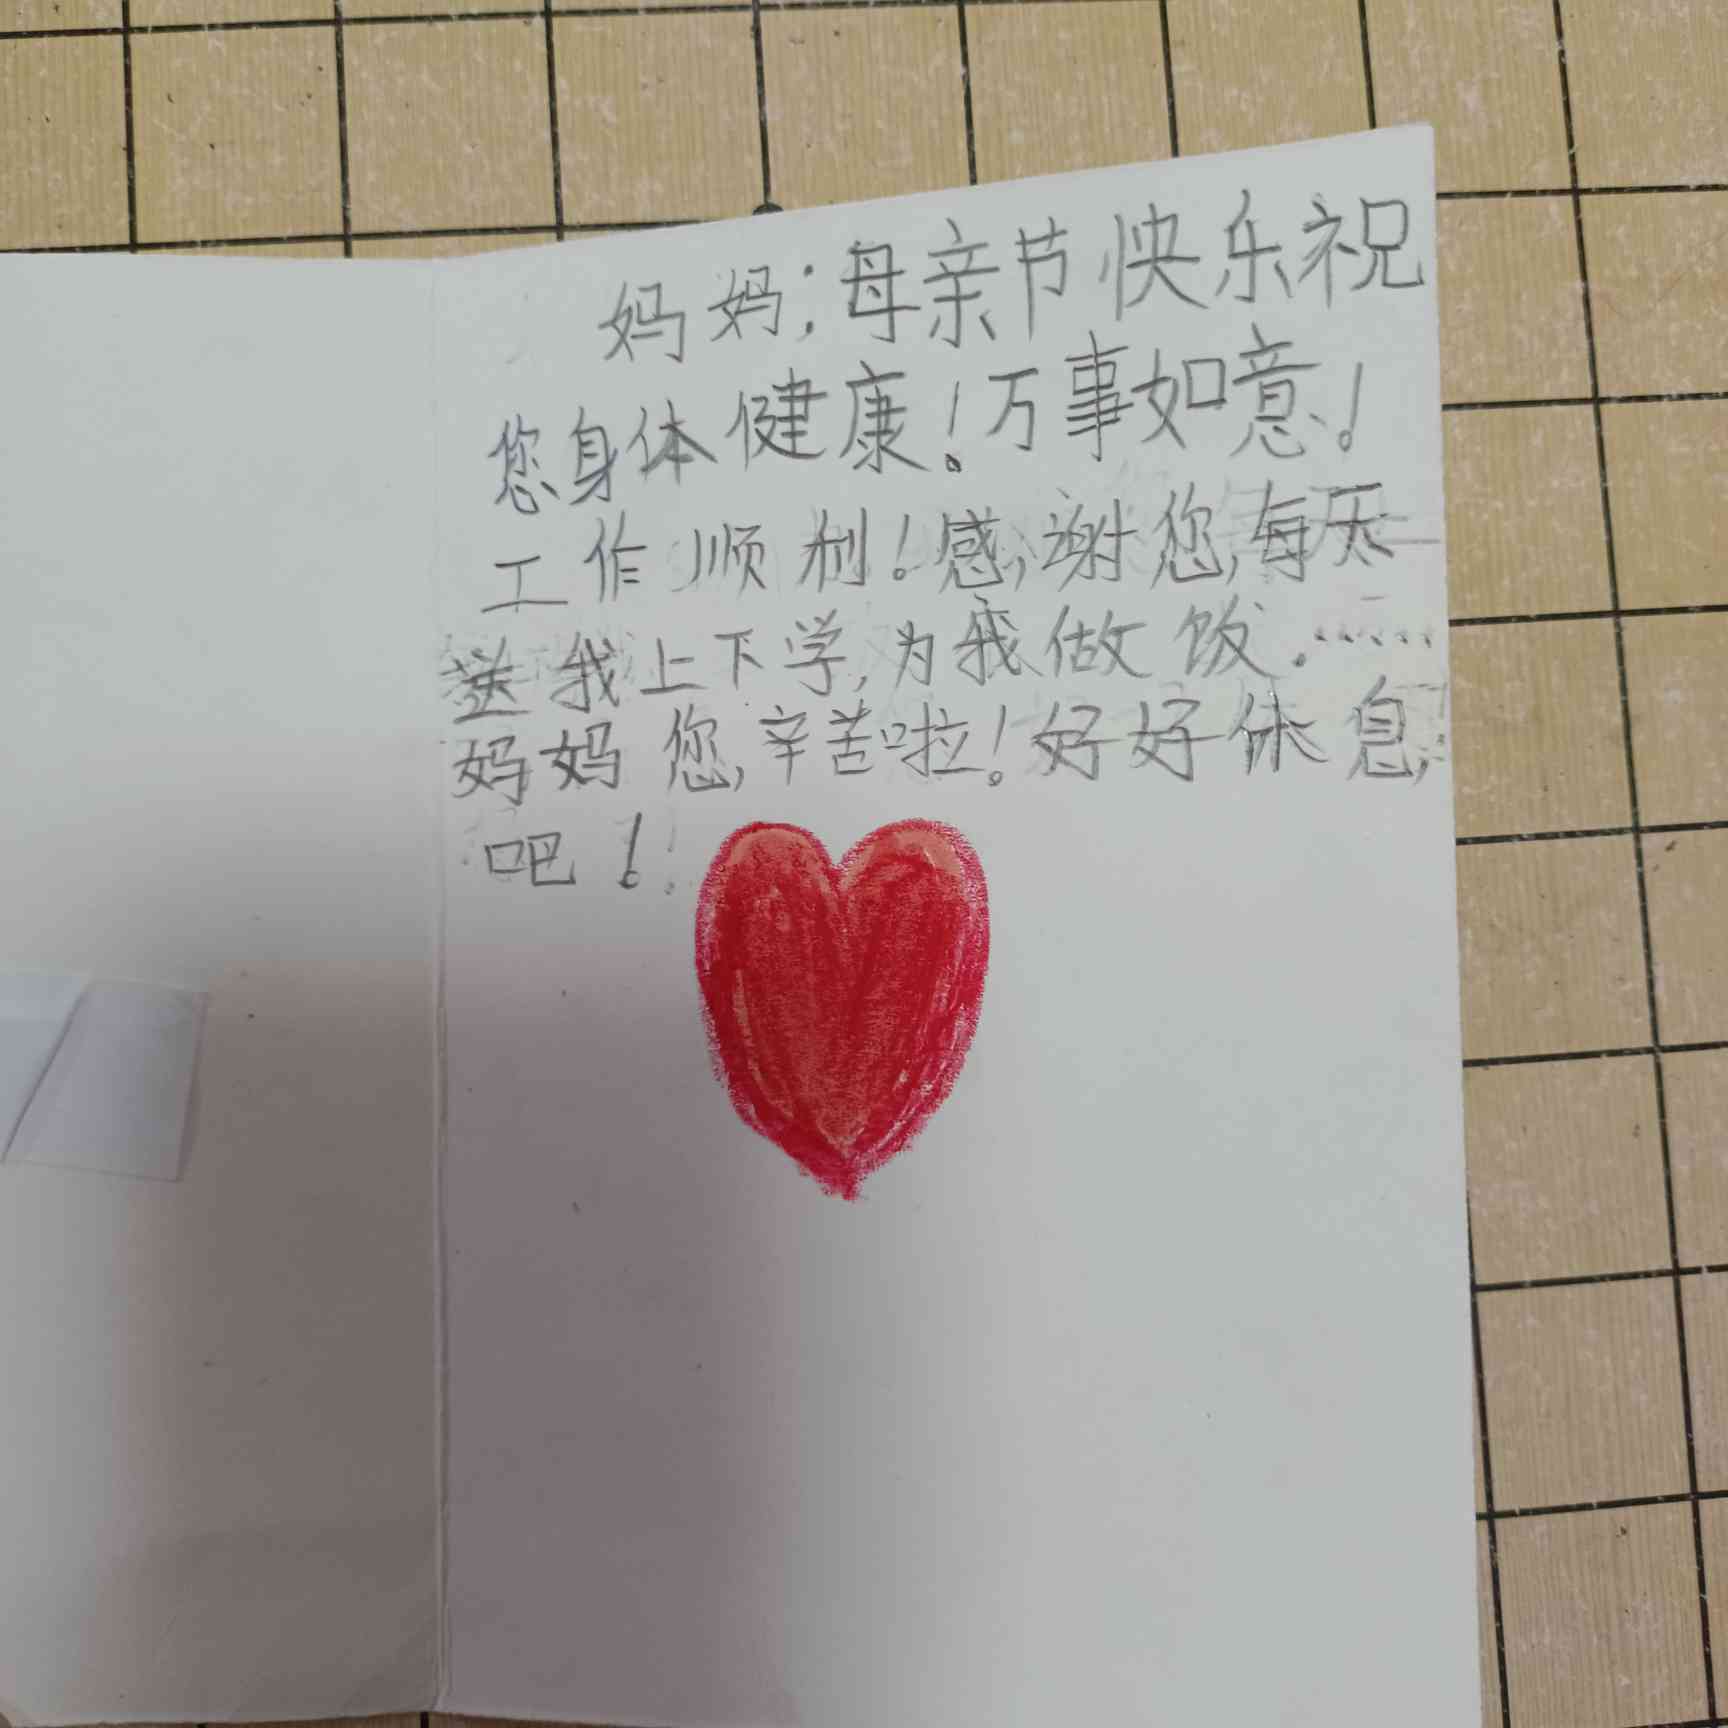 妈妈：母亲节快乐祝
您身体健康！万事如意！
工作顺利！感谢您，每天
送我上下学，为我做饭。……
妈妈您，辛苦啦！好好休息，
吧！